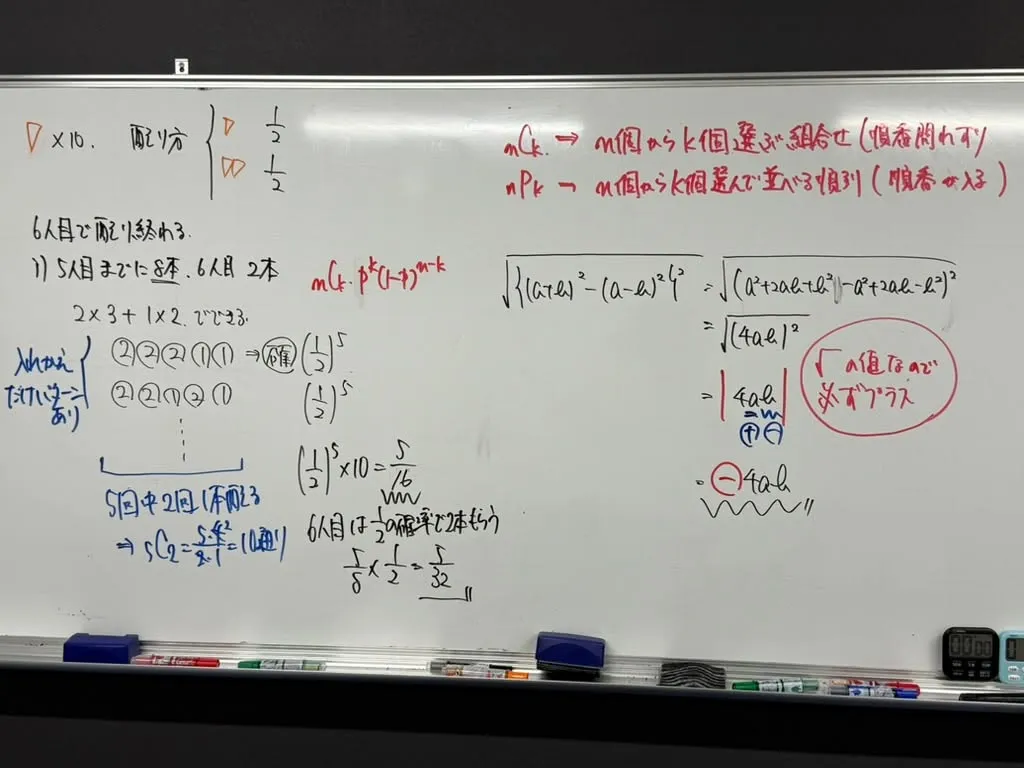 ▽×10. 配り方 { ▽ 1/2
▽▽ 1/2
6人目で配り終わる.
1) 5人目までに8本、6人目 2本
2×3+1×2. でできる
②②②①① ⇒ 確 (1/2)^5
②②①②① (1/2)^5
入れかえ
だけパターン
あり
5回中2回1本配る
⇒ 5C2 = 5·4/2·1 = 10通り
nCk. p^k(1-p)^n-k
(1/2)^5 ×10 = 5/16
6人目は1/2の確率で2本もらう
5/8 × 1/2 = 5/32
nCk. → n個からk個選ぶ組合せ (順番問わず)
nPk → n個からk個選んで並べる順列 (順番が入る)
√{(a+b)^2-(a-b)^2}^2 = √(a^2+2ab+b^2-a^2+2ab-b^2)^2
= √(4ab)^2
= |4ab|
⊕⊖
= -4ab
√の値なので
必ずプラス